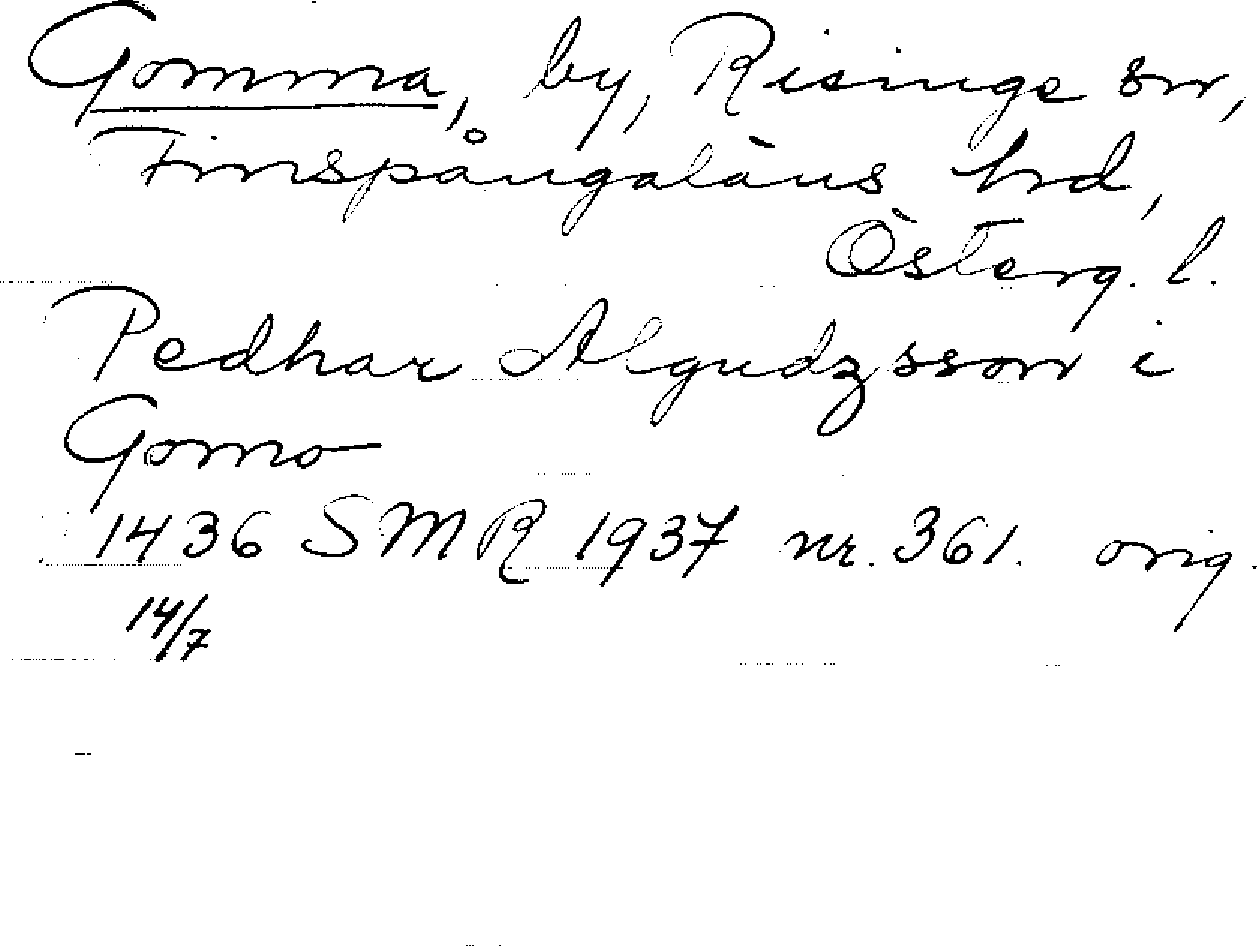 Gomma, by, Risinge sn,
Finspångaläns hrd,
Österg. l.
Pedhar Algudzsson i
Gomo
1436 SMR 1937 nr. 361. orig.
14/7